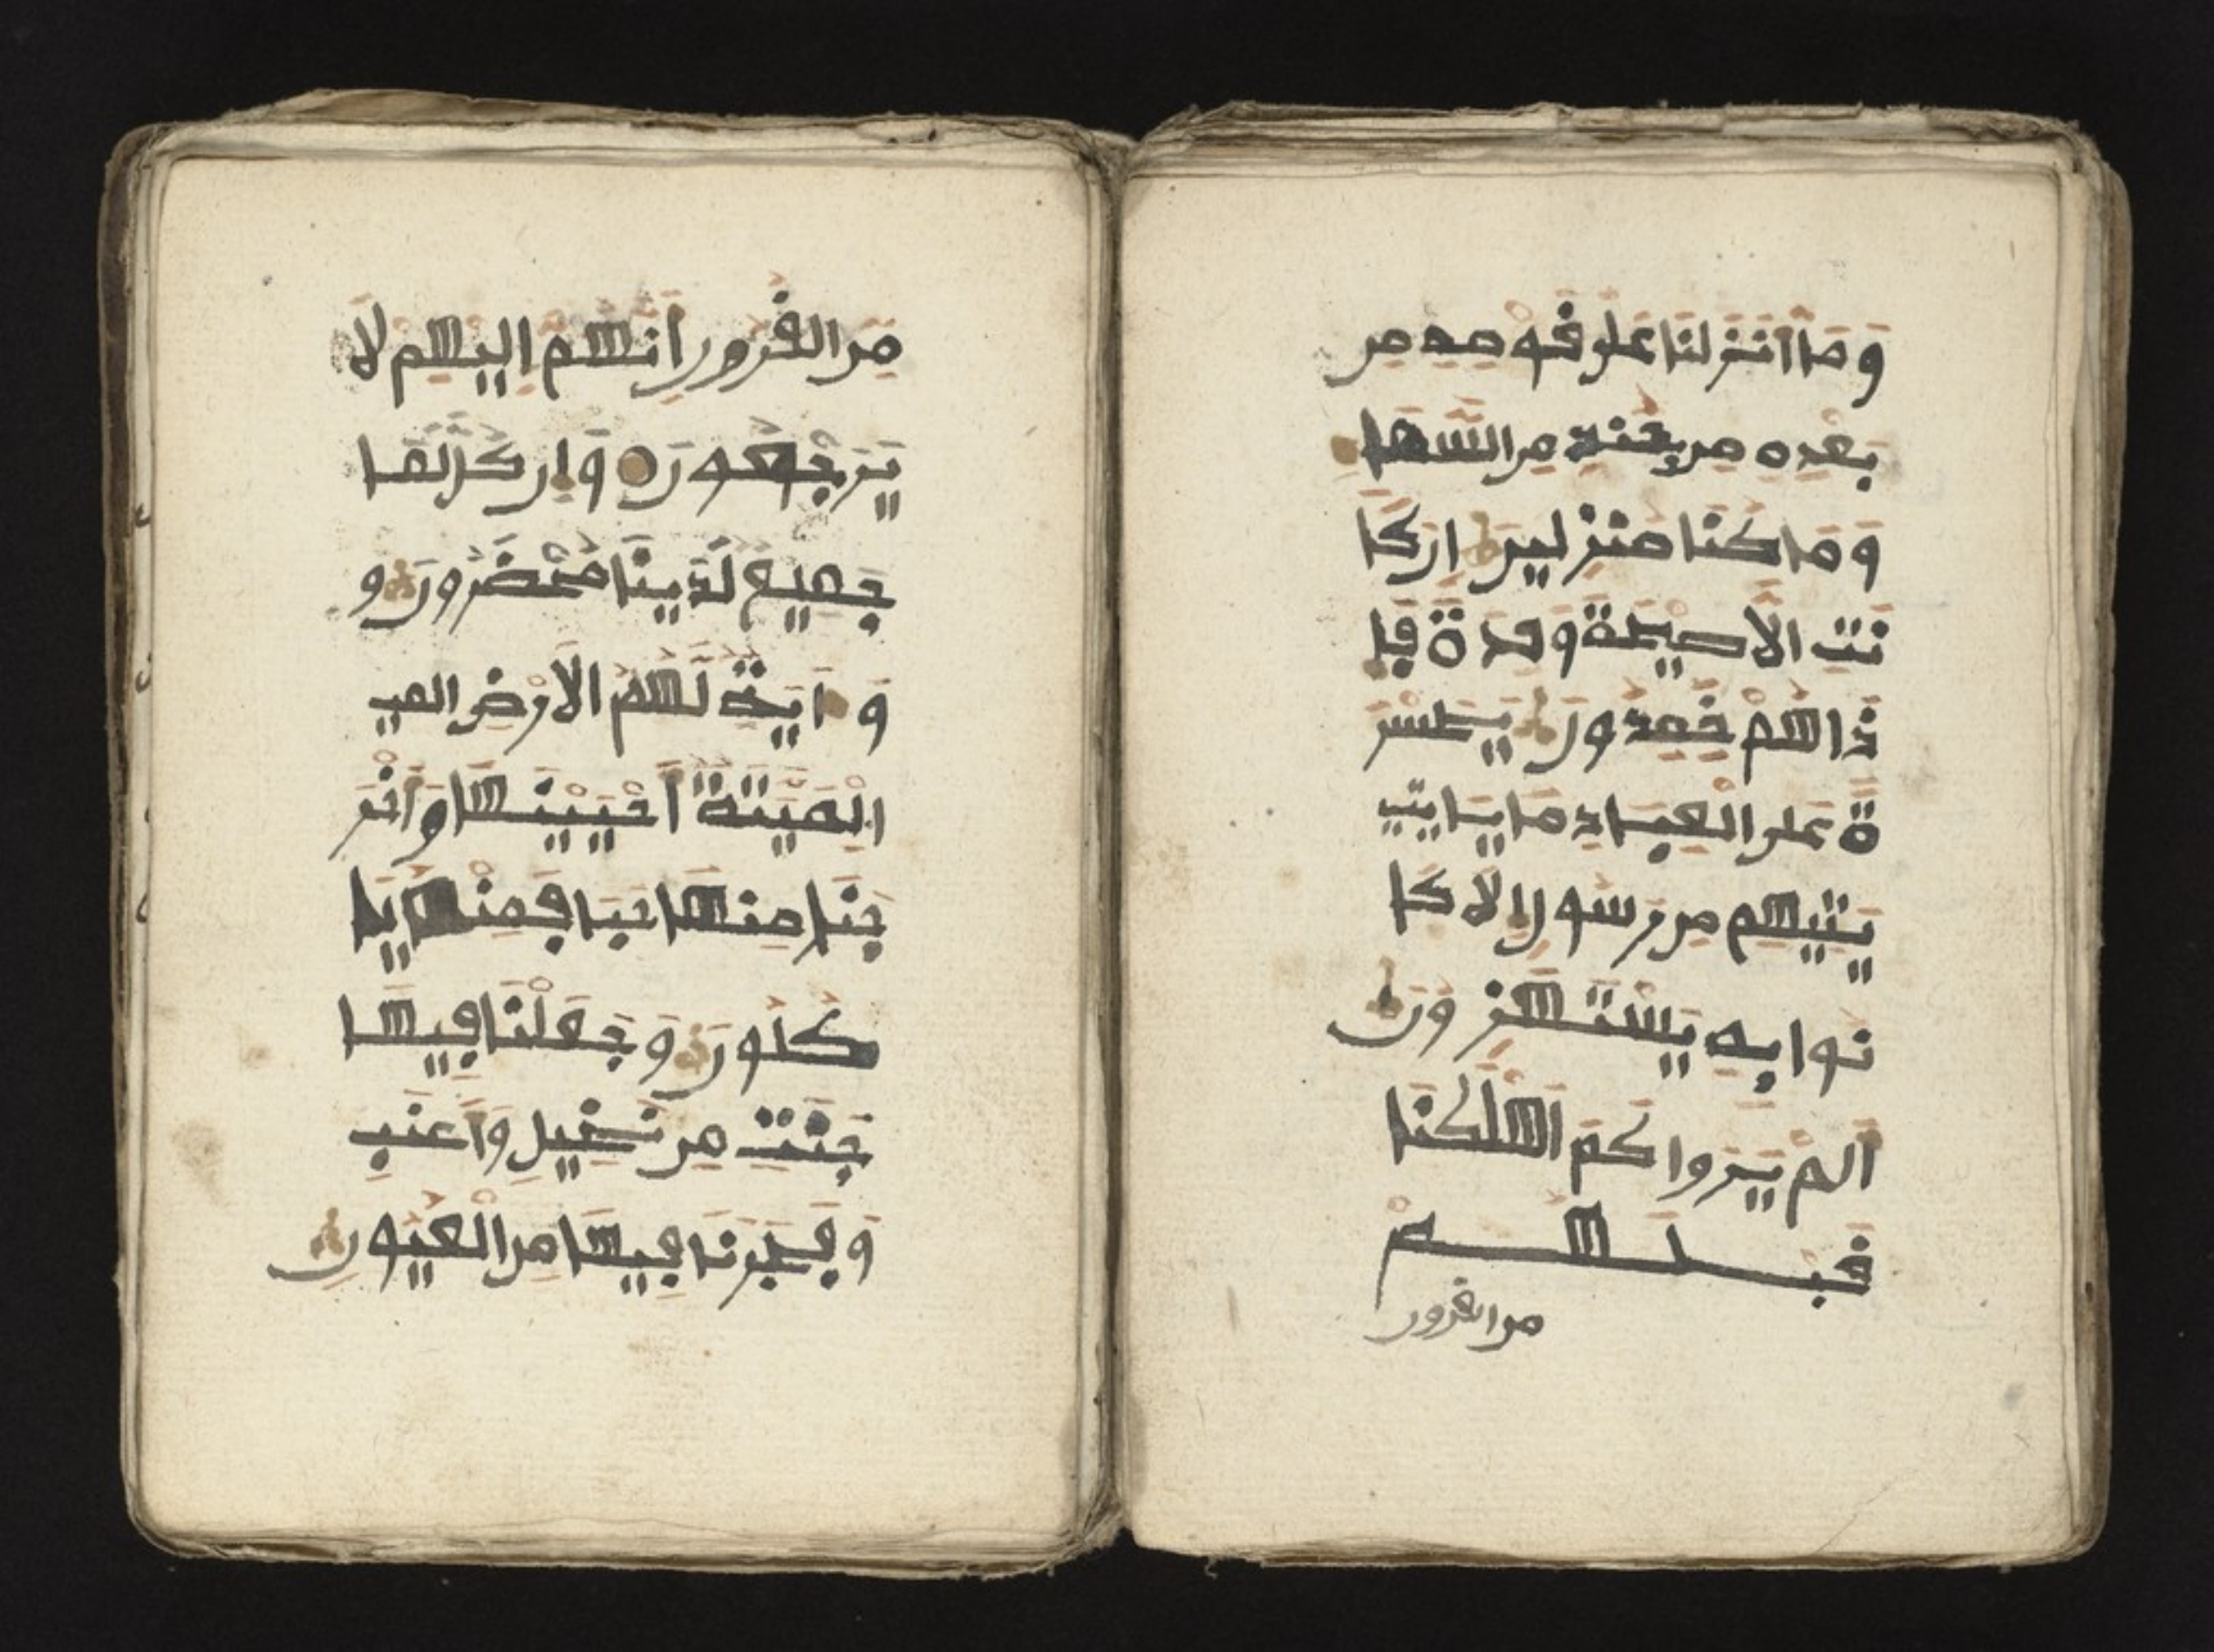 وَمَا أَنزَلنَا عَلَى قَوْمِهِ مِن
بَعْدِهِ مِن جُندٍ مِنَ السَّمَا
وَمَا كُنَّا مُنزِلِينَ إِن كَا
نَتِ إِلَّا صَيْحَةً وَحِدَةً فَإِ
ذَا هُمْ خَمِدُونَ يَحَسْرَ
ةً عَلَى الْعِبَادِ مَا يَا تِي
يَتِيهِم مِن رَسُولٍ إِلَّا كَا
نُوا بِهِ يَسْتَهْزِءُونَ
أَلَمْ يَرَوا كَمَ اَهْلَكْنَا
قَبْلَهُمْ
من القرون
مِنَ الْقُرُونِ أَنَّهُمُ إِلَيْهِمْ لَا
يَرْجِعُونَ وَإِن كُلٌّ لَمَا
جَمِيعٌ لَدَيْنَا مُحْضَرُونَ و
وَءَايَةٌ لَهُمُ الْأَرْضُ المي
الْمَيِّتَةُ أَحْيَيْنَهَا وَأَخْرَ
جْنَا مِنْهَا حَبًّا فَمِنْهُ يَا
كُلُونَ وَجَعَلْنَا فِيهَا
جَنَّتٍ مِن نَخِيلٍ وَأَعْنَبٍ
وَفَجَّرْنَا فِيهَا مِنَ الْعُيُونِ